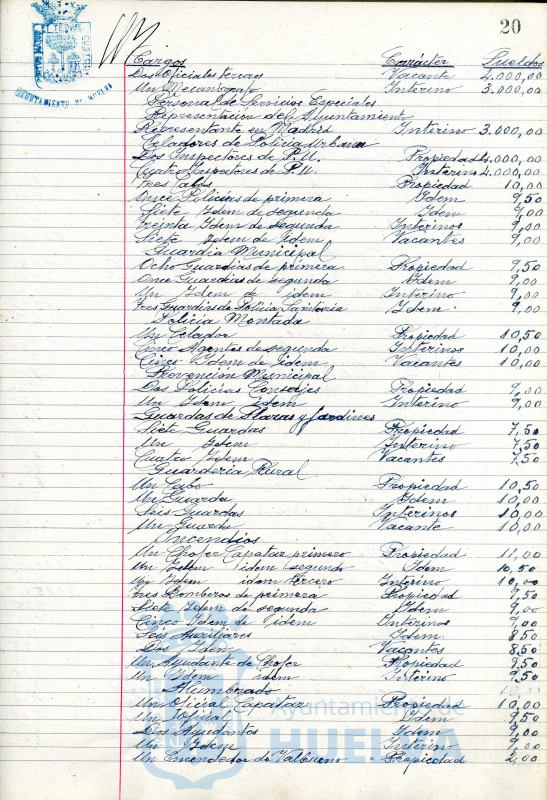 20
Cargos Carácter Sueldos
Dos Oficiales terceros Vacante 4.000,00
Un Mecanógrafo Interino 3.000,00
Personal de Servicios Especiales
Representacion del Ayuntamiento
Representante en Madrid Interino 3.000,00
Celadores de Policía Urbana
Dos Inspectores de P.U. Propiedad 4.000,00
Cuatro Inspectores de P.U. Interino 4.000,00
Tres Cabos Propiedad 10,00
Once Policías de primera Idem 9,50
Siete Idem de segunda Idem 9,00
Treinta Idem de segunda Interinos 9,00
Siete Idem de Idem Vacantes 9,00
Guardia Municipal
Ocho Guardias de primera Propiedad 9,50
Once Guardias de segunda Idem 9,00
Un Idem de idem Interino 9,00
Tres Guardias de Policía Sanitaria Idem 9,00
Policía Montada
Un Celador Propiedad 10,50
Cinco Agentes de segunda Interinos 10,00
Cinco Idem de idem Vacantes 10,00
Prevención Municipal
Dos Policías Conserjes Propiedad 9,00
Un Idem idem Interino 9,00
Guardas de Plazas y Jardines
Siete Guardas Propiedad 7,50
Un Idem Interino 7,50
Cuatro Idem Vacantes 7,50
Guardería Rural
Un Cabo Propiedad 10,50
Un Guarda Idem 10,00
Seis Guardas Interinos 10,00
Un Guarda Vacante 10,00
Incendios
Un Chofer Capataz primero Propiedad 11,00
Un Idem idem segundo Idem 10,50
Un Idem idem tercero Interino 10,00
Tres Bomberos de primera Propiedad 9,50
Siete Idem de segunda Idem 9,00
Cinco Idem de idem Interinos 9,00
Seis Auxiliares Idem 8,50
Dos Idem Vacantes 8,50
Un Ayudante de Chofer Propiedad 9,50
Un Idem idem Interino 9,50
Alumbrado
Un Oficial Capataz Propiedad 10,00
Un Oficial Idem 9,50
Dos Ayudantes Idem 9,00
Un Idem Interino 9,00
Un Encendedor de Valbueno Propiedad 2,00
AYUNTAMIENTO DE HUELVA
Ayuntamiento de
HUELVA